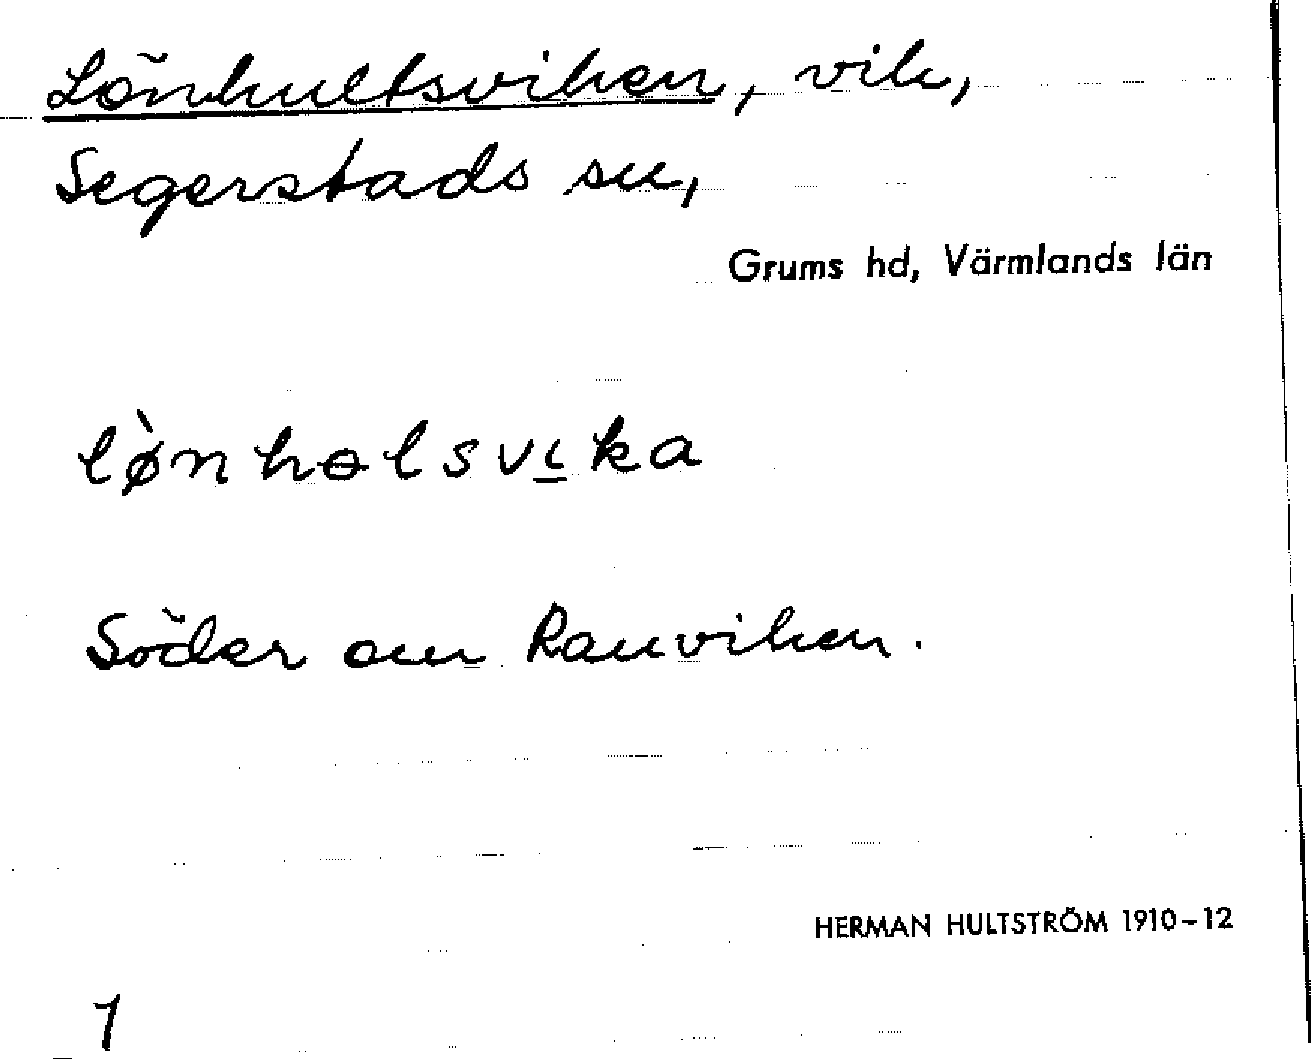 Lönhultsviken, vik,
Segerstads sn,
Grums hd, Värmlands län
lø̀nhɵlsvɩ̱ka
Söder om Ranviken.
HERMAN HULTSTRÖM 1910-12
1